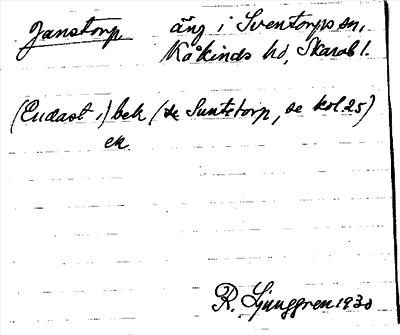 Janstorp äng i Sventorps sn,
Kåkinds hd, Skarab l.
(Endast i) bek (se Suntetorp, se kol 25)
ek
R. Ljunggren 1930